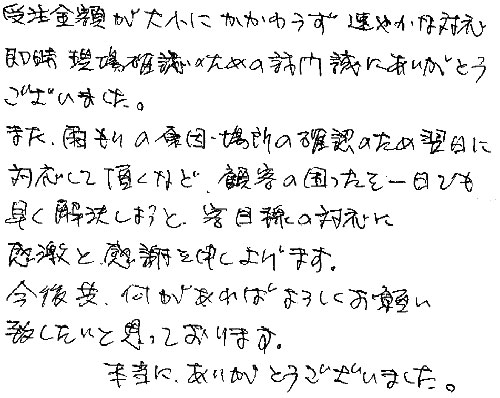 受注金額が大小にかかわらず速やかな対応
即時現場確認のための訪問誠にありがとう
ございました。
また、雨もりの原因・場所の確認のため翌日に
対応して頂くなど、顧客の困ったを一日でも
早く解決しようと、客目線の対応に
感激と感謝を申し上げます。
今後共、何かあればよろしくお願い
致したいと思っております。
本当に、ありがとうございました。